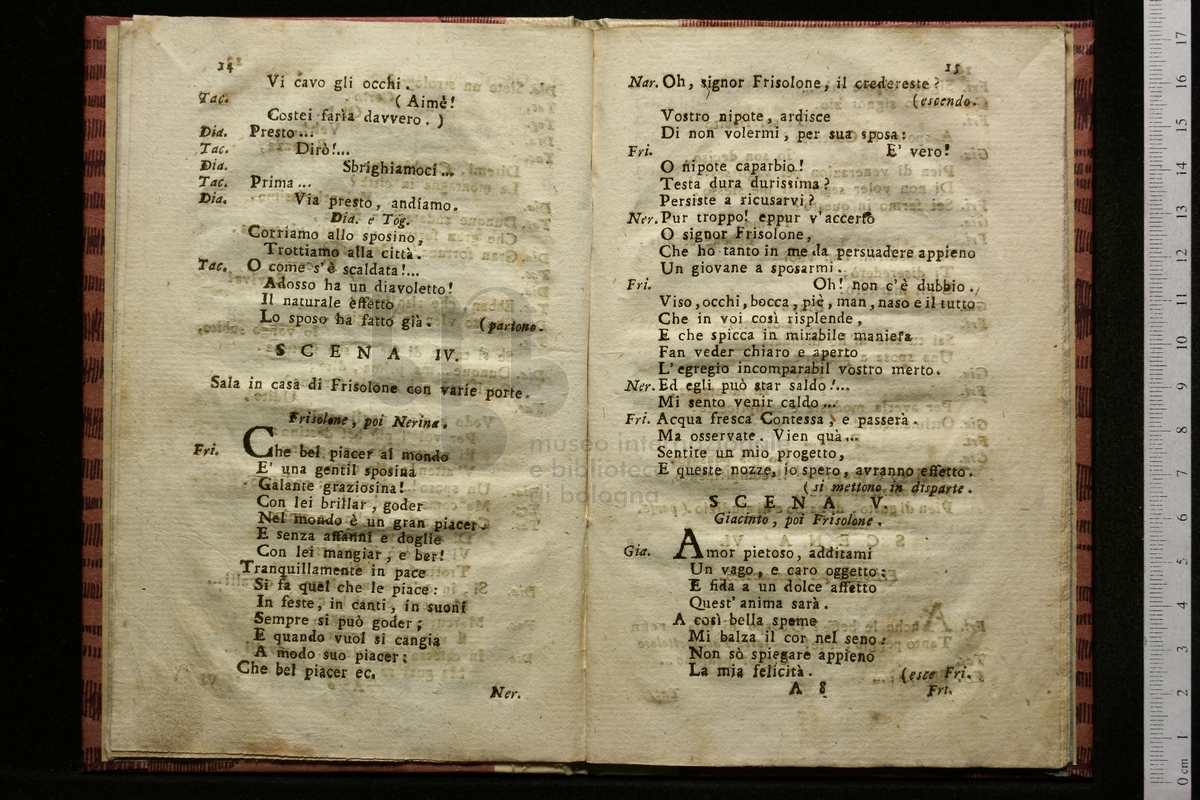 14
Vi cavo gli occhi.
Tac. (Aimè!
Costei faria davvero. )
Dia. Presto...
Tac. Dirò!...
Dia. Sbrighiamoci...
Tac. Prima...
Dia. Via presto, andiamo.
Dia. e Tog.
Corriamo allo sposino,
Trottiamo alla città.
Tac. O come s'è scaldata!...
Adosso ha un diavoletto!
Il naturale effetto
Lo sposo ha fatto già. (partono.
SCENA IV.
Sala in casa di Frisolone con varie porte.
Frisolone, poi Nerina.
Fri. Che bel piacer al mondo
E' una gentil sposina
Galante graziosina!
Con lei brillar, goder
Nel mondo è un gran piacer.
E senza affanni e doglie
Con lei mangiar, e ber!
Tranquillamente in pace
Si fà quel che le piace:
In feste, in canti, in suoni
Sempre si può goder;
E quando vuol si cangia
A modo suo piacer:
Che bel piacer ec.
Ner.
15
Nar. Oh, signor Frisolone, il credereste?
(escendo.
Vostro nipote, ardisce
Di non volermi, per sua sposa:
Fri. E' vero!
O nipote caparbio!
Testa dura durissima?
Persiste a ricusarvi?
Ner. Pur troppo! eppur v'accerto
O signor Frisolone,
Che ho tanto in me da persuadere appieno
Un giovane a sposarmi.
Fri. Oh! non c'è dubbio.
Viso, occhi, bocca, piè, man, naso e il tutto
Che in voi così risplende,
E che spicca in mirabile maniera
Fan veder chiaro e aperto
L'egregio incomparabil vostro merto.
Ner. Ed egli può star saldo!...
Mi sento venir caldo...
Fri. Acqua fresca Contessa, e passerà.
Ma osservate. Vien quà...
Sentite un mio progetto,
E queste nozze, io spero, avranno effetto.
(si mettono in disparte.
SCENA V.
Giacinto, poi Frisolone.
Gia. Amor pietoso, additami
Un vago, e caro oggetto:
E fida a un dolce affetto
Quest'anima sarà.
A così bella speme
Mi balza il cor nel seno:
Non sò spiegare appieno
La mia felicità. (esce Fri.
A 8 Fri.
museo internazionale
e biblioteca
di bologna
0 cm 1 2 3 4 5 6 7 8 9 10 11 12 13 14 15 16 17